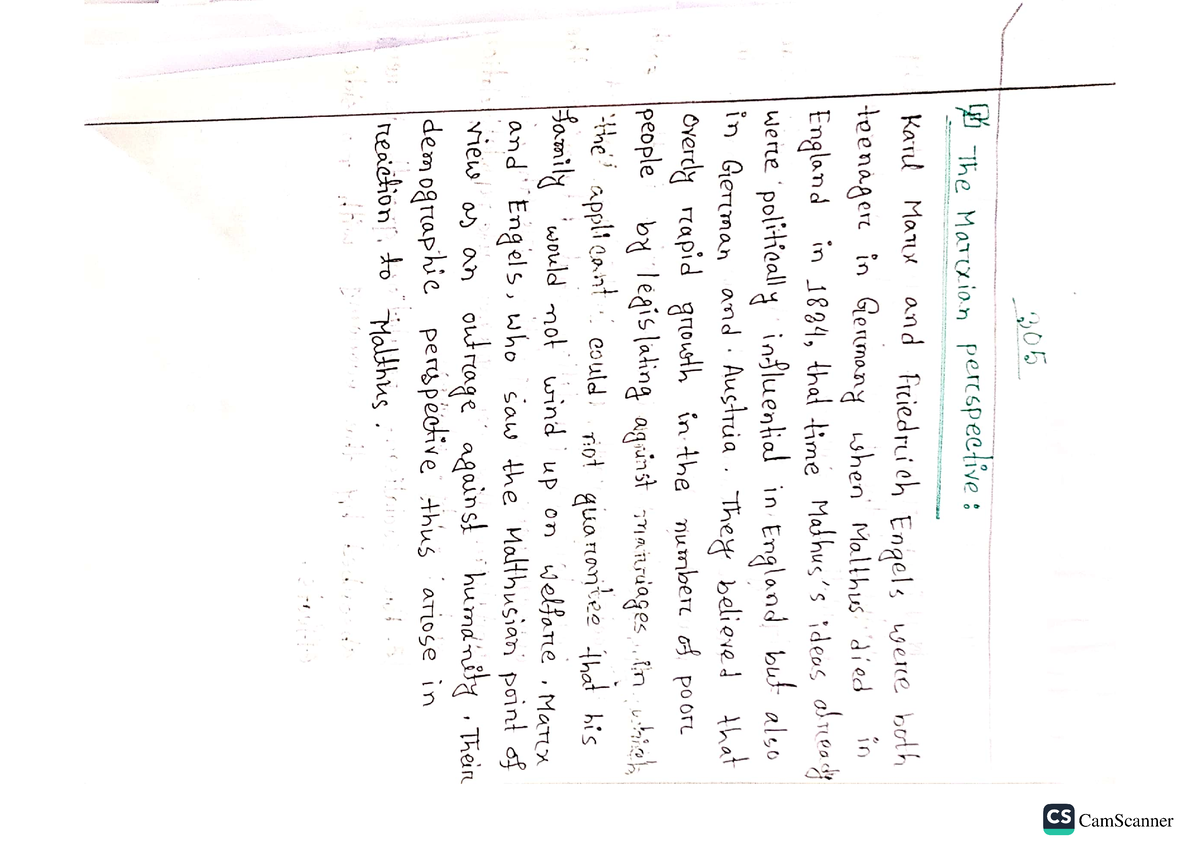 305
The Marxian perspective:
Karl Marx and Friedrich Engels were both
teenager in Germany when Malthus died in
England in 1834, that time Mathus's ideas already
were politically influential in England but also
in German and Austria. They believed that
overly rapid growth in the number of poor
people by legislating against marriages in which
the applicant could not guarantee that his
family would not wind up on welfare. Marx
and Engels, who saw the Malthusian point of
view as an outrage against humanity. Their
demographic perspective thus arose in
reaction to Malthus.
CS CamScanner